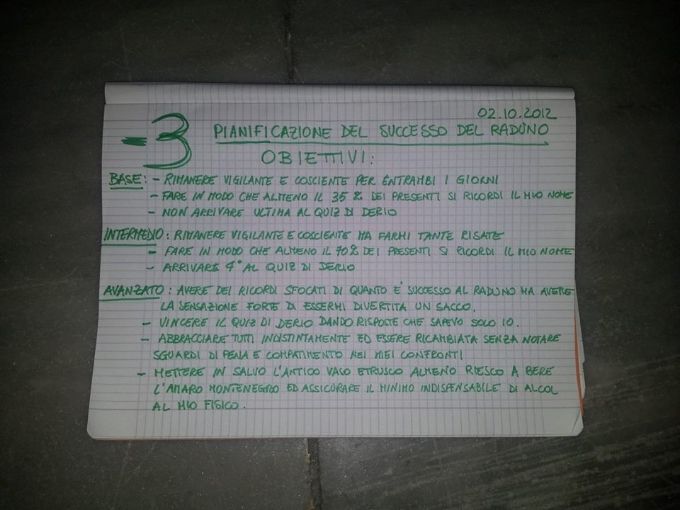 02.10.2012
-3 PIANIFICAZIONE DEL SUCCESSO DEL RADUNO
OBIETTIVI:
BASE: - RIMANERE VIGILANTE E COSCIENTE PER ENTRAMBI I GIORNI
- FARE IN MODO CHE ALMENO IL 35% DEI PRESENTI SI RICORDI IL MIO NOME
- NON ARRIVARE ULTIMA AL QUIZ DI DERIO
INTERMEDIO: RIMANERE VIGILANTE E COSCIENTE MA FARMI TANTE RISATE
- FARE IN MODO CHE ALMENO IL 70% DEI PRESENTI SI RICORDI IL MIO NOME
- ARRIVARE 4° AL QUIZ DI DERIO
AVANZATO: AVERE DEI RICORDI SFOCATI DI QUANTO E' SUCCESSO AL RADUNO MA AVERE
LA SENSAZIONE FORTE DI ESSERMI DIVERTITA UN SACCO.
- VINCERE IL QUIZ DI DERIO DANDO RISPOSTE CHE SAPEVO SOLO IO.
- ABBRACCIARE TUTTI INDISTINTAMENTE ED ESSERE RICAMBIATA SENZA NOTARE
SGUARDI DI PENA E COMPATIMENTO NEI MIEI CONFRONTI
- METTERE IN SALVO L'ANTICO VASO ETRUSCO ALMENO RIESCO A BERE
L'AMARO MONTENEGRO ED ASSICURARE IL MINIMO INDISPENSABILE DI ALCOL
AL MIO FISICO.